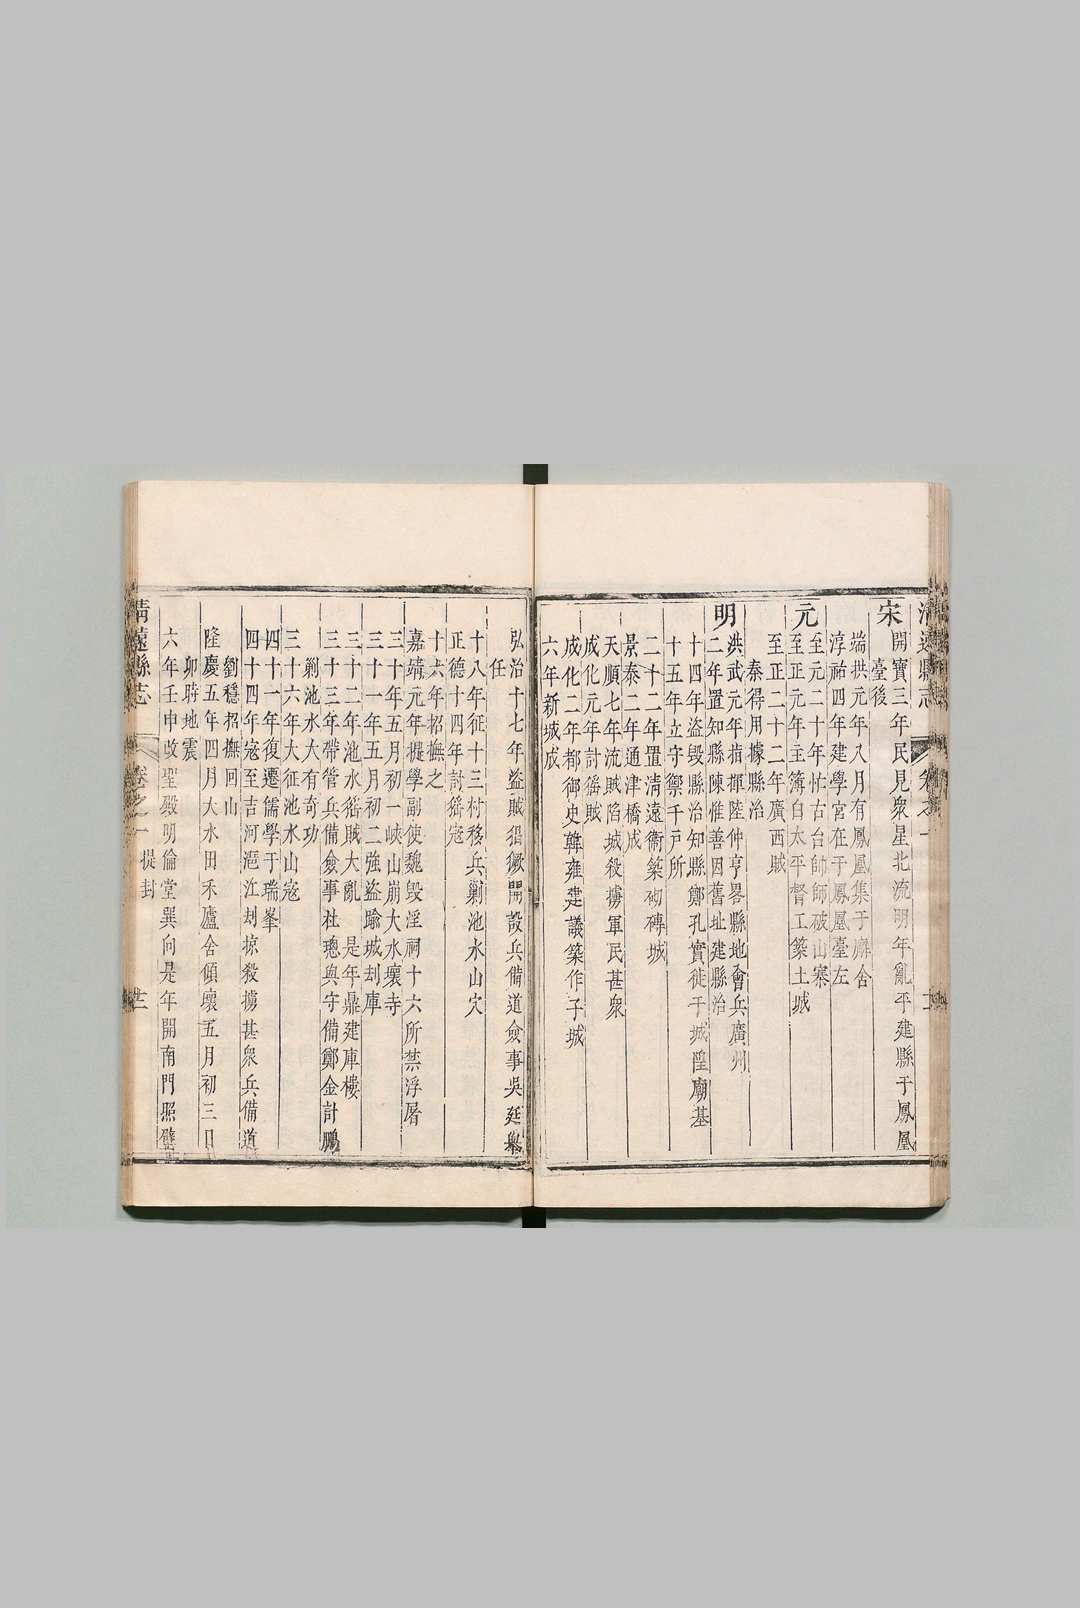 宋
開寶三年民見衆星北流明年亂平建縣于鳳凰
臺後
端拱元年八月有鳳凰集于廨舍
淳祐四年建學宮在于鳳凰臺左
元
至元二十年怗古台帥師破山寨
至正元年主簿白太平督工築土城
至正二十二年廣西賊
秦得用據縣治
明
洪武元年指揮陸仲亨畧縣地會兵廣州
二年置知縣陳惟善因舊址建縣治
十四年盜毀縣治知縣鄭孔實徙于城隍廟基
十五年立守禦千戸所
二十二年置淸遠衞築砌磚城
景泰二年通津橋成
天順七年流賊陷城殺擄軍民甚衆
成化元年討猺賊
成化二年都御史韓雍建議築作子城
六年新城成
弘治十七年盜賊猖獗開設兵備道僉事吳廷舉
任
十八年征十三村移兵剿池水山穴
正德十四年討猺寇
十六年招撫之
嘉靖元年提學副使魏毀淫祠十六所禁浮屠
三十年五月初一峽山崩大水壞寺
三十一年五月初二強盜踰城刦庫
三十二年池水猺賊大亂 是年鼎建庫樓
三十三年帶管兵備僉事杜璁與守備鄭金計鵬
剿池水大有奇功
三十六年大征池水山寇
四十一年復遷儒學于瑞峯
四十四年寇至吉河滬江刦掠殺擄甚衆兵備道
劉穩招撫回山
隆慶五年四月大水田禾廬舍傾壞五月初三日
卯時地震
六年壬申改聖殿明倫堂巽向是年開南門照壁
淸遠縣志
卷之一
提封